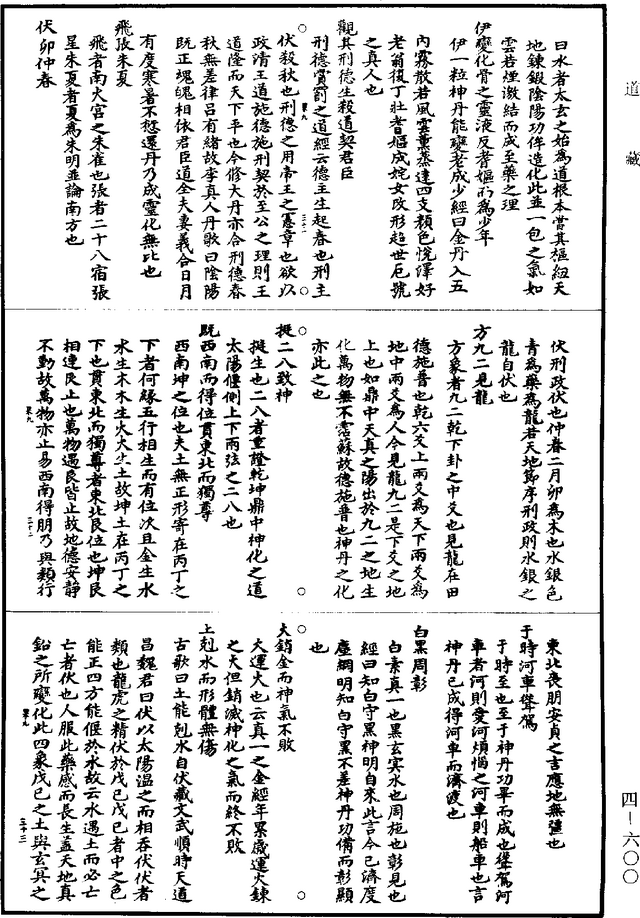 道藏
曰水者太玄之始為道根本當其樞紐天
地鍊鍛陰陽功侔造化此並一包之氣如
雲若煙激結而成至藥之理
伊變化骨之靈液反耆嫗而為少年
伊一粒神丹能變老成少經曰金丹入五
內霧散若風雲熏蒸達四支顏色悅澤好
老翁復丁壯耆嫗成姹女改形超世厄號
之真人也
觀其刑德生殺道契君臣
刑德賞罰之道經云德主生起春也刑主
伏殺秋也刑德之用帝王之憲章也欲以
政清王道施德施刑契於至公之理則王
道隆而天下平也今修大丹亦合刑德春
秋無差律呂有緒故李真人丹歌曰陰陽
既正魂魄相依君臣道全夫妻義合日月
有度寒暑不愆還丹乃成靈化無比也
飛張朱夏
飛者南火宮之朱雀也張者二十八宿張
星朱夏者夏為朱明並論南方也
伏卯仲春
伏刑政伏也仲春二月卯為木也水銀色
青為藥為龍若天地節序刑政則水銀之
龍自伏也
方九二見龍
方象者九二乾下卦之中爻也見龍在田
德施普也乾六爻上兩爻為天下兩爻為
地中兩爻為人今見龍九二是下爻之地
上也如鼎中天真之陽出於九二之地生
化萬物無不霑蘇故德施普也神丹之化
亦此之也
挺二八致神
挺生也二八者重證乾坤鼎中神化之道
太陽偃側上下兩弦之二八也
既西南而得位貫東北而獨尊
西南坤之位也夫土無正形寄在丙丁之
下者何緣五行相生而有位次且金生水
水生木木生火火生土故坤土在丙丁之
下也貫東北而獨尊者東北艮位也坤艮
相連艮止也萬物遇艮皆止故地德安靜
不動故萬物亦止易西南得朋乃與類行
東北喪朋安貞之言應地無疆也
于時河車聳駕
于時至也至于神丹功畢而成也聳駕河
車者河則愛河煩惱之河車則船車也言
神丹已成得河車而濟渡也
白黑周彰
白素真一也黑玄冥水也周施也彰見也
經曰知白守黑神明自來此言今已濟度
塵網明知白守黑不差神丹功備而彰顯
也
大銷金而神氣不敗
大運火也云真一之金經年累歲運火鍊
之火但銷滅神化之氣而終不敗
上剋水而形體無傷
古歌曰土能剋水自伏藏文武順時天道
昌魏君曰伏以太陽溫之而相吞伏伏者
類也龍虎之精伏於戊己戊己者中之色
能正四方能偃於水故云水遇土而必亡
亡者伏也人服此藥感而長生蓋天地真
鉛之所變化此四象戊己之土與玄冥之
四-六〇〇